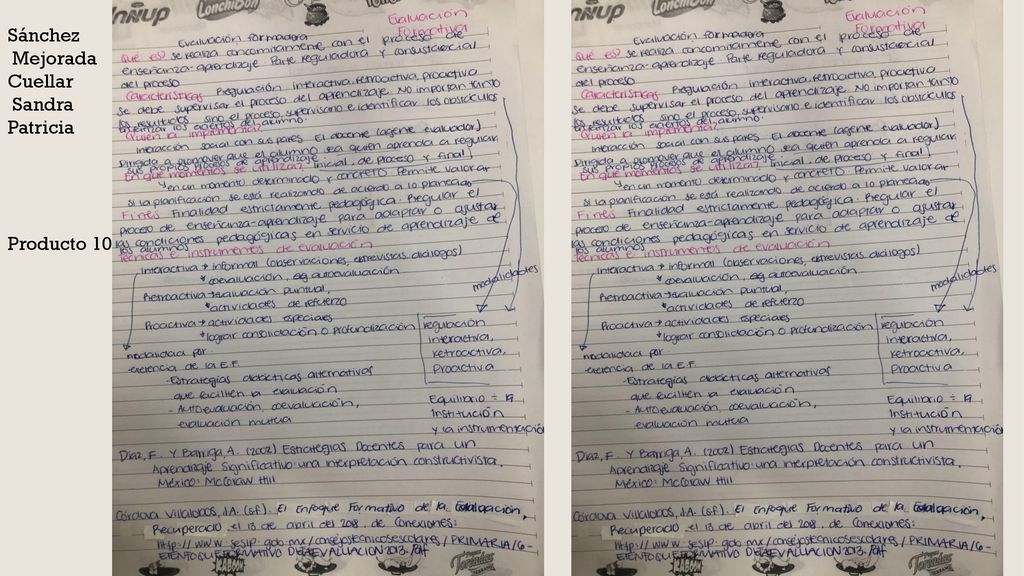 Sánchez
Mejorada
Cuellar
Sandra
Patricia
Producto 10
LonchiBon
Evaluación
Formativa
Evaluación formadora
Qué es? se realiza concomitamente con el proceso de
enseñanza-aprendizaje Parte reguladora y consustancial
del proceso
Características Regulación interactiva, retroactiva, proactiva
Se debe supervisar el proceso del aprendizaje. No importan tanto
los resultados sino el proceso, supervisarlo e identificar los obstáculos
los aciertos del alumno.
Quién la implementa?
Interacción social con sus pares. El docente (agente evaluador)
Dirigida a promover que el alumno sea quién aprenda a regular
sus propios procesos de aprendizaje
En qué momentos se utiliza? Inicial, de proceso y final
Y en un momento determinado y concreto Permite valorar
si la planificación se está realizando de acuerdo a lo planeado
Fines Finalidad estrictamente pedagógica. Regular el
proceso de enseñanza-aprendizaje para adaptar o ajustar
las condiciones pedagógicas en servicio de aprendizaje de
los alumnos
Técnicas e instrumentos de evaluación
Interactiva → informal (observaciones, entrevistas, dialogos)
* coevaluación, autoevaluación
Retroactiva → evaluación puntual,
* actividades de refuerzo
Proactiva → actividades especiales
* lograr consolidación o profundización
modalidades
regulación
interactiva,
retroactiva,
Proactiva
modalidad por
exerencia de la E.F
- Estrategias didácticas alternativas
que faciliten la evaluación
- Autoevaluación, coevaluación,
evaluación mutua
Equilibrio =
Institución
y la instrumentación
Díaz, F. Y Barriga, A. (2002) Estrategias Docentes para un
Aprendizaje Significativo: una interpretación constructivista.
México: McGraw Hill
Córdova Villalobos, J.A. (s.f). El Enfoque Formativo de la Evaluación,
Recuperado el 13 de abril del 2018, de Conexiones:
http://www.sesip.gob.mx/consejostecnicosescolares/PRIMARIA/6-
KABOOM
Tornados
LonchiBon
Evaluación
Formativa
Evaluación formadora
Qué es? se realiza concomitamente con el proceso de
enseñanza-aprendizaje Parte reguladora y consustancial
del proceso
Características Regulación interactiva, retroactiva, proactiva
Se debe supervisar el proceso del aprendizaje. No importan tanto
los resultados sino el proceso, supervisarlo e identificar los obstáculos
los aciertos del alumno.
Quién la implementa?
Interacción social con sus pares. El docente (agente evaluador)
Dirigida a promover que el alumno sea quién aprenda a regular
sus propios procesos de aprendizaje
En qué momentos se utiliza? Inicial, de proceso y final
Y en un momento determinado y concreto Permite valorar
si la planificación se está realizando de acuerdo a lo planeado
Fines Finalidad estrictamente pedagógica. Regular el
proceso de enseñanza-aprendizaje para adaptar o ajustar
las condiciones pedagógicas en servicio de aprendizaje de
los alumnos
Técnicas e instrumentos de evaluación
Interactiva → informal (observaciones, entrevistas, dialogos)
* coevaluación, autoevaluación
Retroactiva → evaluación puntual,
* actividades de refuerzo
Proactiva → actividades especiales
* lograr consolidación o profundización
modalidades
regulación
interactiva,
retroactiva,
Proactiva
modalidad por
exerencia de la E.F
- Estrategias didácticas alternativas
que faciliten la evaluación
- Autoevaluación, coevaluación,
evaluación mutua
Equilibrio =
Institución
y la instrumentación
Díaz, F. Y Barriga, A. (2002) Estrategias Docentes para un
Aprendizaje Significativo: una interpretación constructivista.
México: McGraw Hill
Córdova Villalobos, J.A. (s.f). El Enfoque Formativo de la Evaluación,
Recuperado el 13 de abril del 2018, de Conexiones:
http://www.sesip.gob.mx/consejostecnicosescolares/PRIMARIA/6-
KABOOM
Tornados